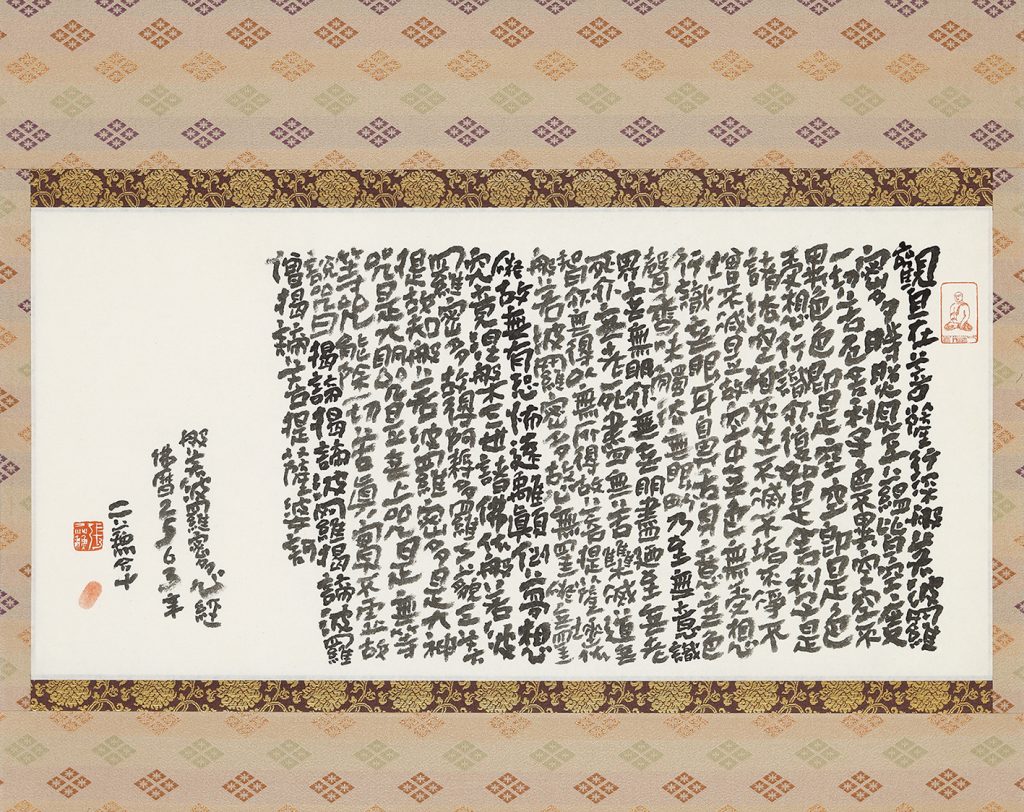 觀自在菩薩行深般若波羅
密多時照見五蘊皆空度
一切苦厄舍利子色不異空空不
異色色即是空空即是色
受想行識亦復如是舍利子是
諸法空相不生不滅不垢不淨不
增不減是故空中無色無受想
行識無眼耳鼻舌身意無色
聲香味觸法無眼界乃至無意識
界無無明亦無無明盡迺至無老
死亦無老死盡無苦集滅道無
智亦無得以無所得故菩提薩埵依
般若波羅密多故心無罣礙無罣
礙故無有恐怖遠離顛倒夢想
究竟涅槃三世諸佛依般若波
羅密多故得阿耨多羅三藐三菩
提故知般若波羅密多是大神
咒是大明咒是無上咒是無等
等咒能除一切苦真實不虛故
說咒曰 揭諦揭諦波羅揭諦波羅
僧揭諦菩提薩婆訶
般若波羅密多心經
佛曆2563年